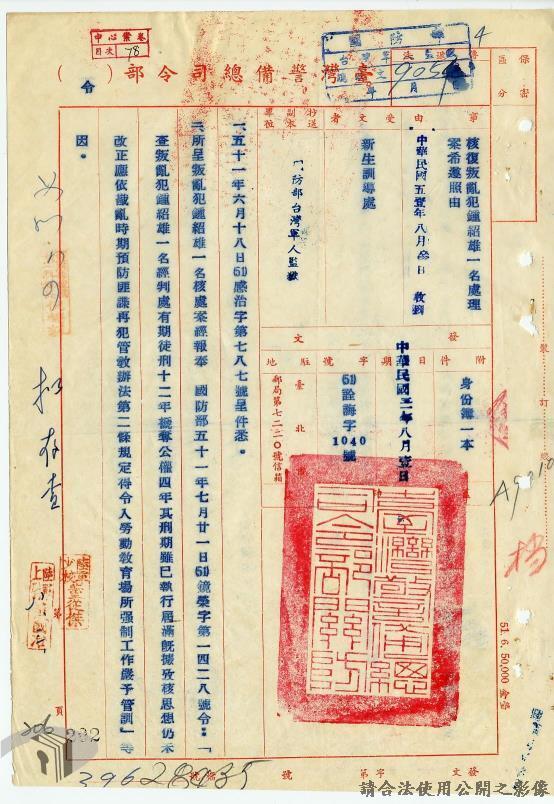 中心案卷
目次 78
國防部
9054
4
臺灣警備總司令部（令）
保密區分
事由
核復叛亂犯鍾紹雄一名處理案希遵照由
受文者
新生訓導處
中華民國五壹年八月叁日 收到
抄送副本單位
國防部台灣軍人監獄
發文
附件
身份簿一本
日期
中華民國五一年八月壹日
字號
(51)詮誨字1040號
駐地
臺北
郵局第七二二〇號信箱
臺灣警備總司令部關防
一、五十一年六月十八日(51)感治字第七八七號呈件悉。
二、所呈叛亂犯鍾紹雄一名核處案經報奉 國防部五十一年七月廿一日(51)鏡榮字第一四二八號令：「
查叛亂犯鍾紹雄一名經判處有期徒刑十二年褫奪公權四年其刑期雖已執行屆滿既據攷核思想仍未
改正應依戡亂時期預防匪諜再犯管教辦法第二條規定得令入勞動教育場所强制工作嚴予管訓」等
因。
擬存查
檔
裝訂線
51. 6. 50,000
第 頁
206
202
39628435
發文 字第 號
請合法使用公開之影像